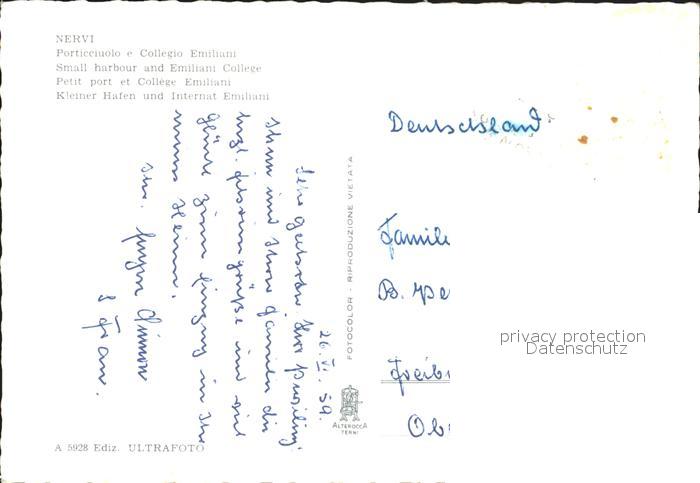 NERVI
Porticciuolo e Collegio Emiliani
Small harbour and Emiliani College
Petit port et Collège Emiliani
Kleiner Hafen und Internat Emiliani
26. VI. 59.
Sehr geehrter Herr
Ihnen und Ihrer Familie die
herzl. und viel
Glück zum Einzug in Ihr
neues Heim.
Ihr. Jürgen
& Frau.
FOTOCOLOR - RIPRODUZIONE VIETATA
ALTEROCCA
TERNI
Deutschland
Familie
B. Pe
Freib
Ob
privacy protection
Datenschutz
A 5928 Ediz. ULTRAFOTO